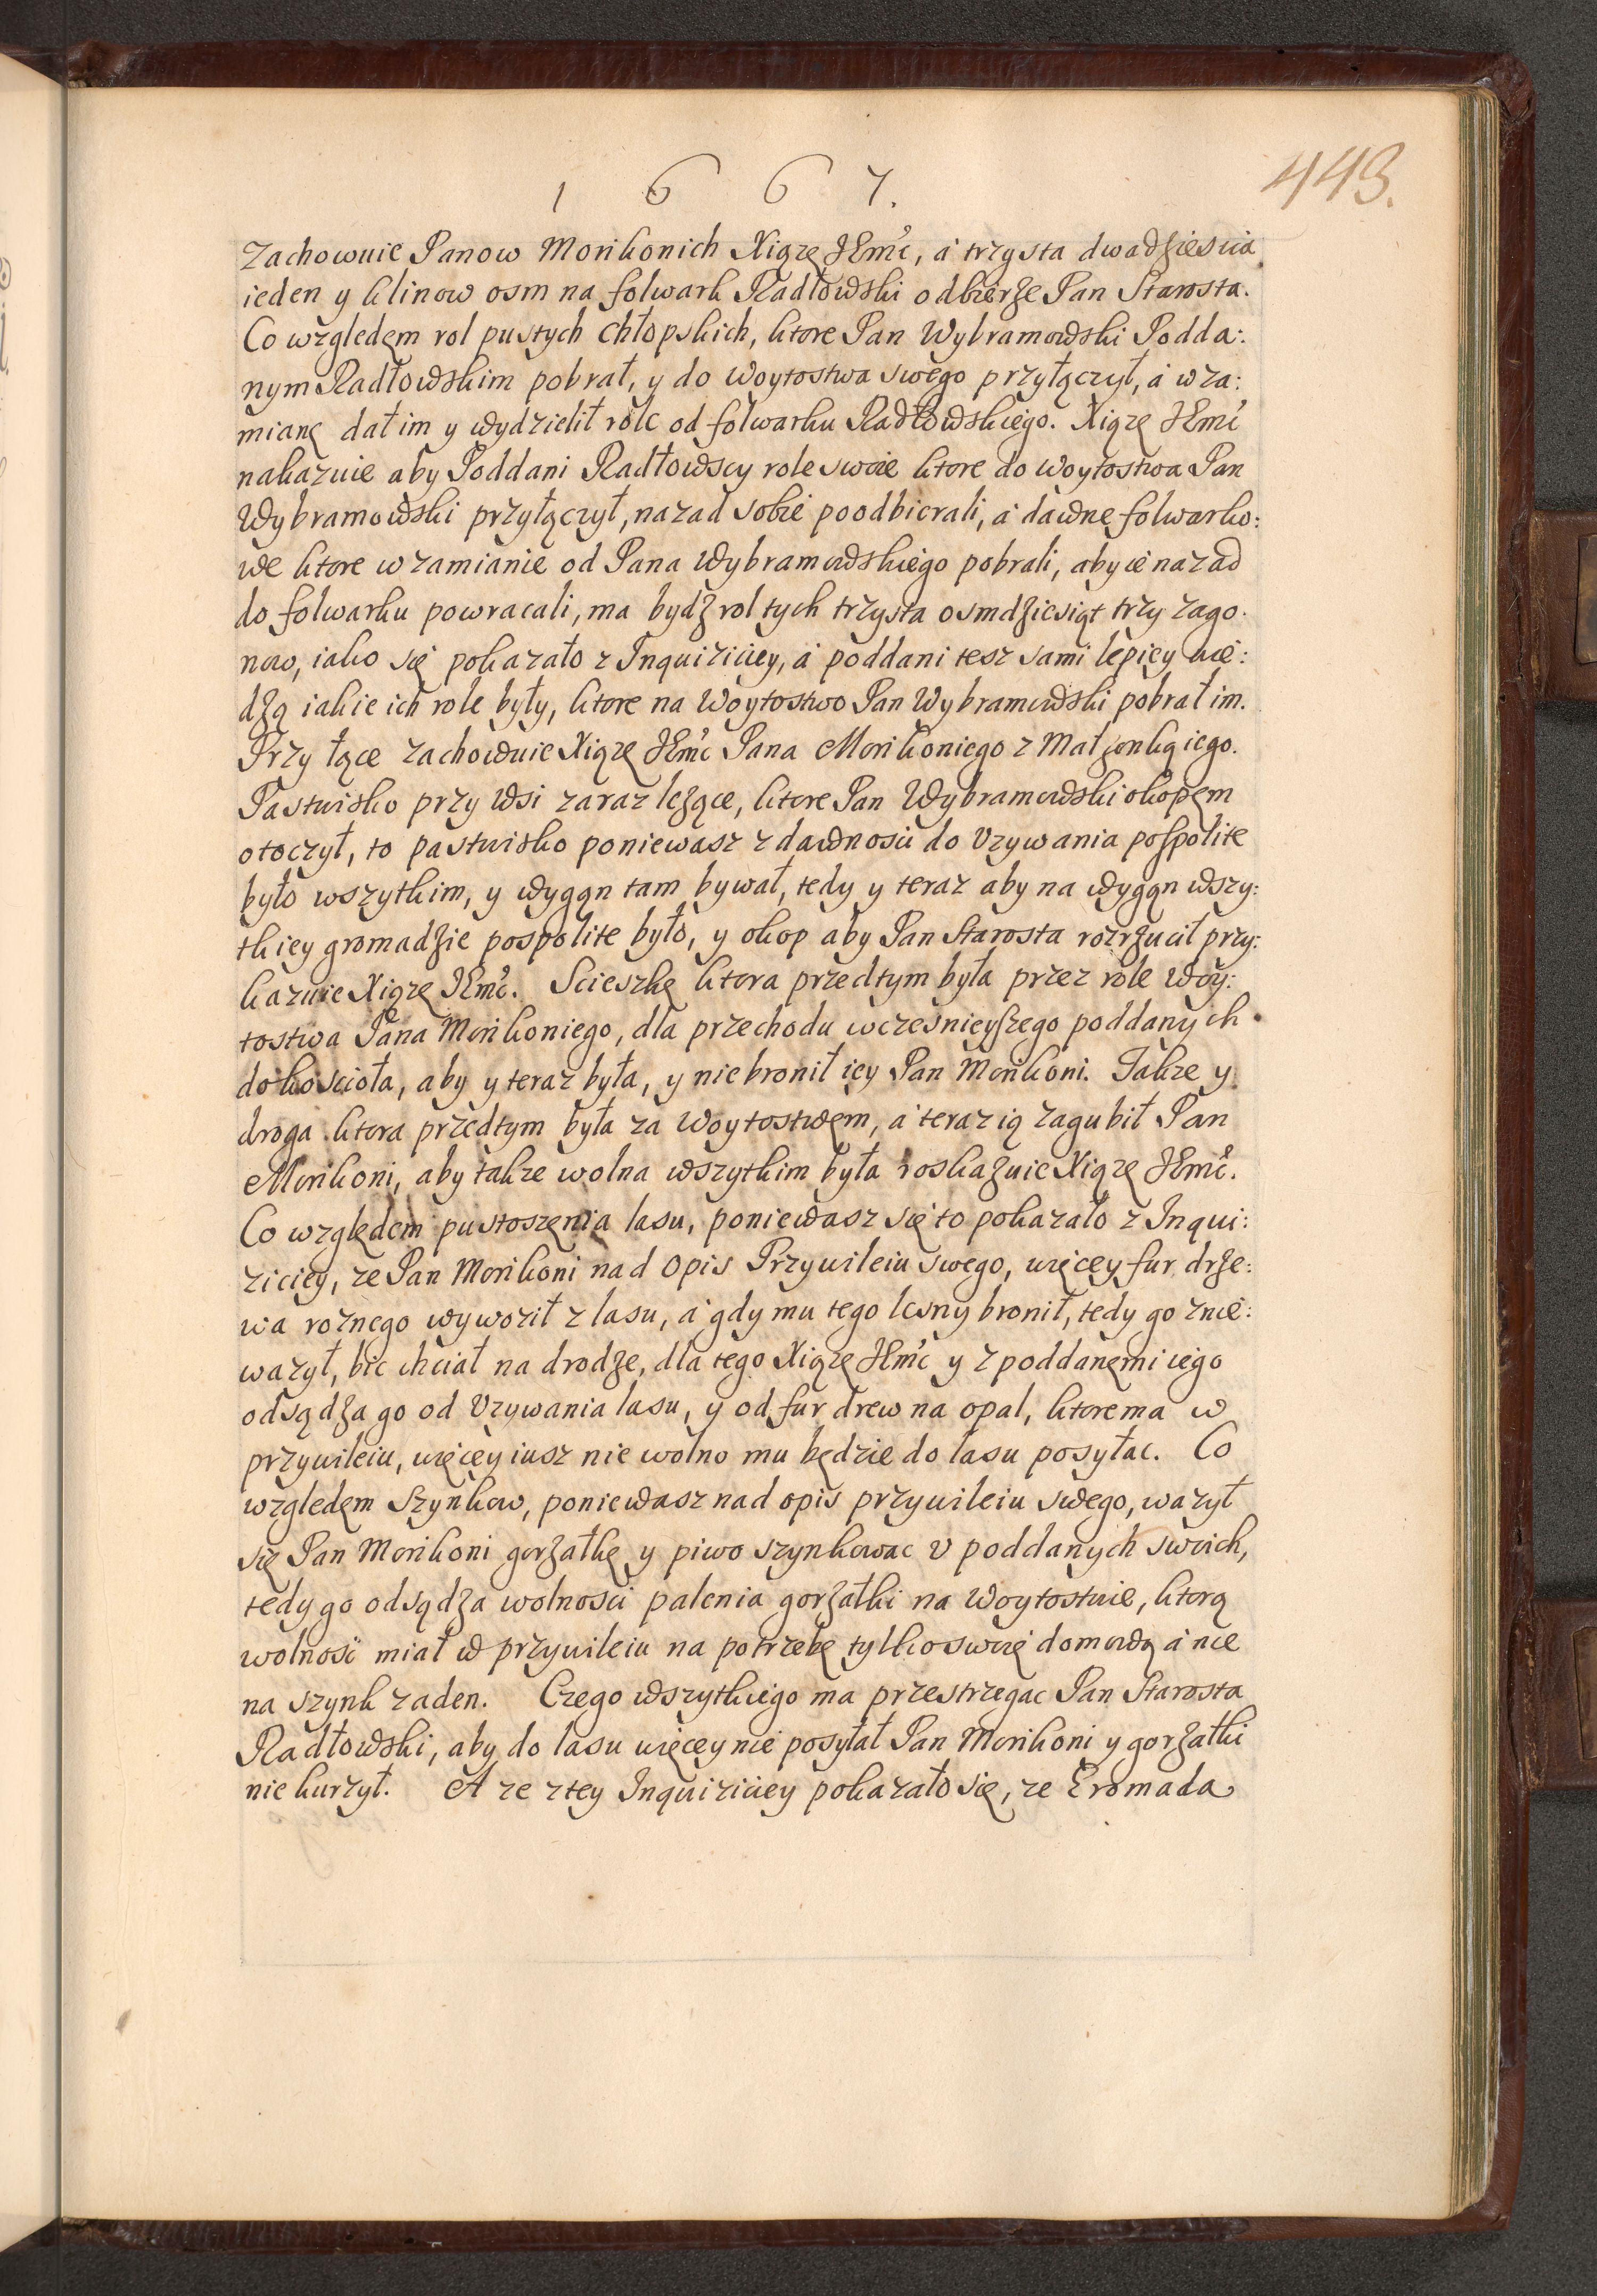 1 6 6 7.
443.
zachowuie Panow Morikonich Xiąże JEmc̃, á trzysta dwadziescia
ieden y klinow osm na folwark Radłowski odbierze Pan Starosta.
Co względem rol pustych chłopskich, ktore Pan Wybramowski Podda:
nym Radłowskim pobrał, y do Woytostwa swego przyłączył, á wza:
mianę dał im y wydzielił role od folwarku Radłowskiego. Xiąże JEmc̃
nakazuie aby Poddani Radłowscy role swoie ktore do woytostwa Pan
Wybramowski przyłączył, nazad sobie poodbierali, á dawne folwarko:
we ktore w zamianie od Pana Wybramowskiego pobrali, aby ie nazad
do folwarku powracali, ma bydz rol tych trzysta osmdziesiąt trzy zago:
now, iako się pokazało z Inquiziciey, á poddani tesz sami lepiey wie:
dzą iakie ich role były, ktore na Woytostwo Pan Wybramowski pobrał im.
Przy łące zachowuie Xiąże JEmc̃ Pana Morikoniego z Małzonką iego.
Pastwisko przy wsi zaraz lezące, ktore Pan Wybramowski okopem
otoczył, to pastwisko poniewasz z dawnosci do Vzywania pospolite
było wszytkim, y wygąn tam bywał, tedy y teraz aby na wygąn wszy:
tkiey gromadzie pospolite było, y okop aby Pan Starosta rozrzucił przy:
kazuie Xiąże JEmc̃. Scieszkę ktora przedtym była przez role Woy:
tostwa Pana Morikoniego, dla przechodu wczesnieyszego poddanych
do kościoła, aby y teraz była, y nie bronił iey Pan Morikoni. Takze y
droga ktora przedtym była za Woytostwem, á teraz ią zagubił Pan
Morikoni, aby takze wolna wszytkim była roskazuie Xiąże JEmc̃.
Co względem pustoszenia lasu, poniewasz się to pokazało z Inqui:
ziciey, ze Pan Morikoni nad opis Przywileiu swego, więcey fur drze:
wa roznego wywoził z lasu, á gdy mu tego lesny bronił, tedy go znie:
wazył, bic chciał na drodze, dla tego Xiąże JEmc̃ y z poddanemi iego
odsądza go od Vzywania lasu, y od fur drew na opal, ktore ma w
przywileiu, więcey iusz nie wolno mu będzie do lasu posyłac. Co
względem Szynkow, poniewasz nad opis przywileiu swego, wazył
się Pan Morikoni gorzałkę y piwo szynkowac v poddanych swoich,
tedy go odsądza wolnosci palenia gorzałki na Woytostwie, ktorą
wolność miał w przywileiu na potrzebę tylko swoię domową á nie
na szynk zaden. Czego wszytkiego ma przestrzegac Pan Starosta
Radłowski, aby do lasu więcey nie posyłał Pan Morikoni y gorzałki
nie kurzył. A ze z tey Inquiziciey pokazało się, ze Gromada